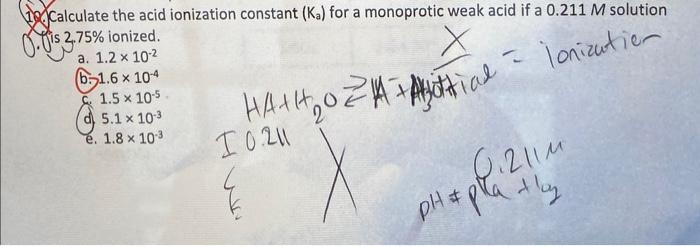 10. Calculate the acid ionization constant (Ka) for a monoprotic weak acid if a 0.211 M solution
is 2.75% ionized.
a. 1.2 × 10-2
b. 1.6 × 10-4
c. 1.5 × 10-5
d. 5.1 × 10-3
e. 1.8 × 10-3
X
= ionization
HA+H2O⇌A-+
I 0.211
0.211M
pH = pKa + log